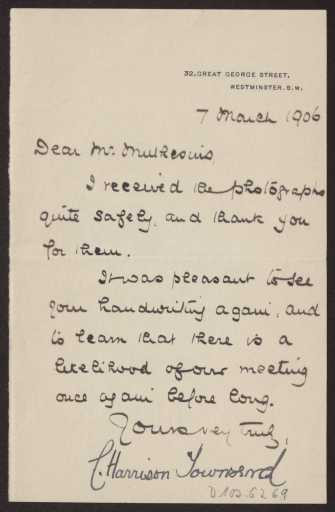 32, GREAT GEORGE STREET,
WESTMINSTER. S.W.
7 March 1906
Dear Mr. Muthesius,
I received the photographs
quite safely, and thank you
for them.
It was pleasant to see
your handwriting again, and
to learn that there is a
likelihood of our meeting
once again before long.
Yours very truly,
C. Harrison Townsend
D 102-5269